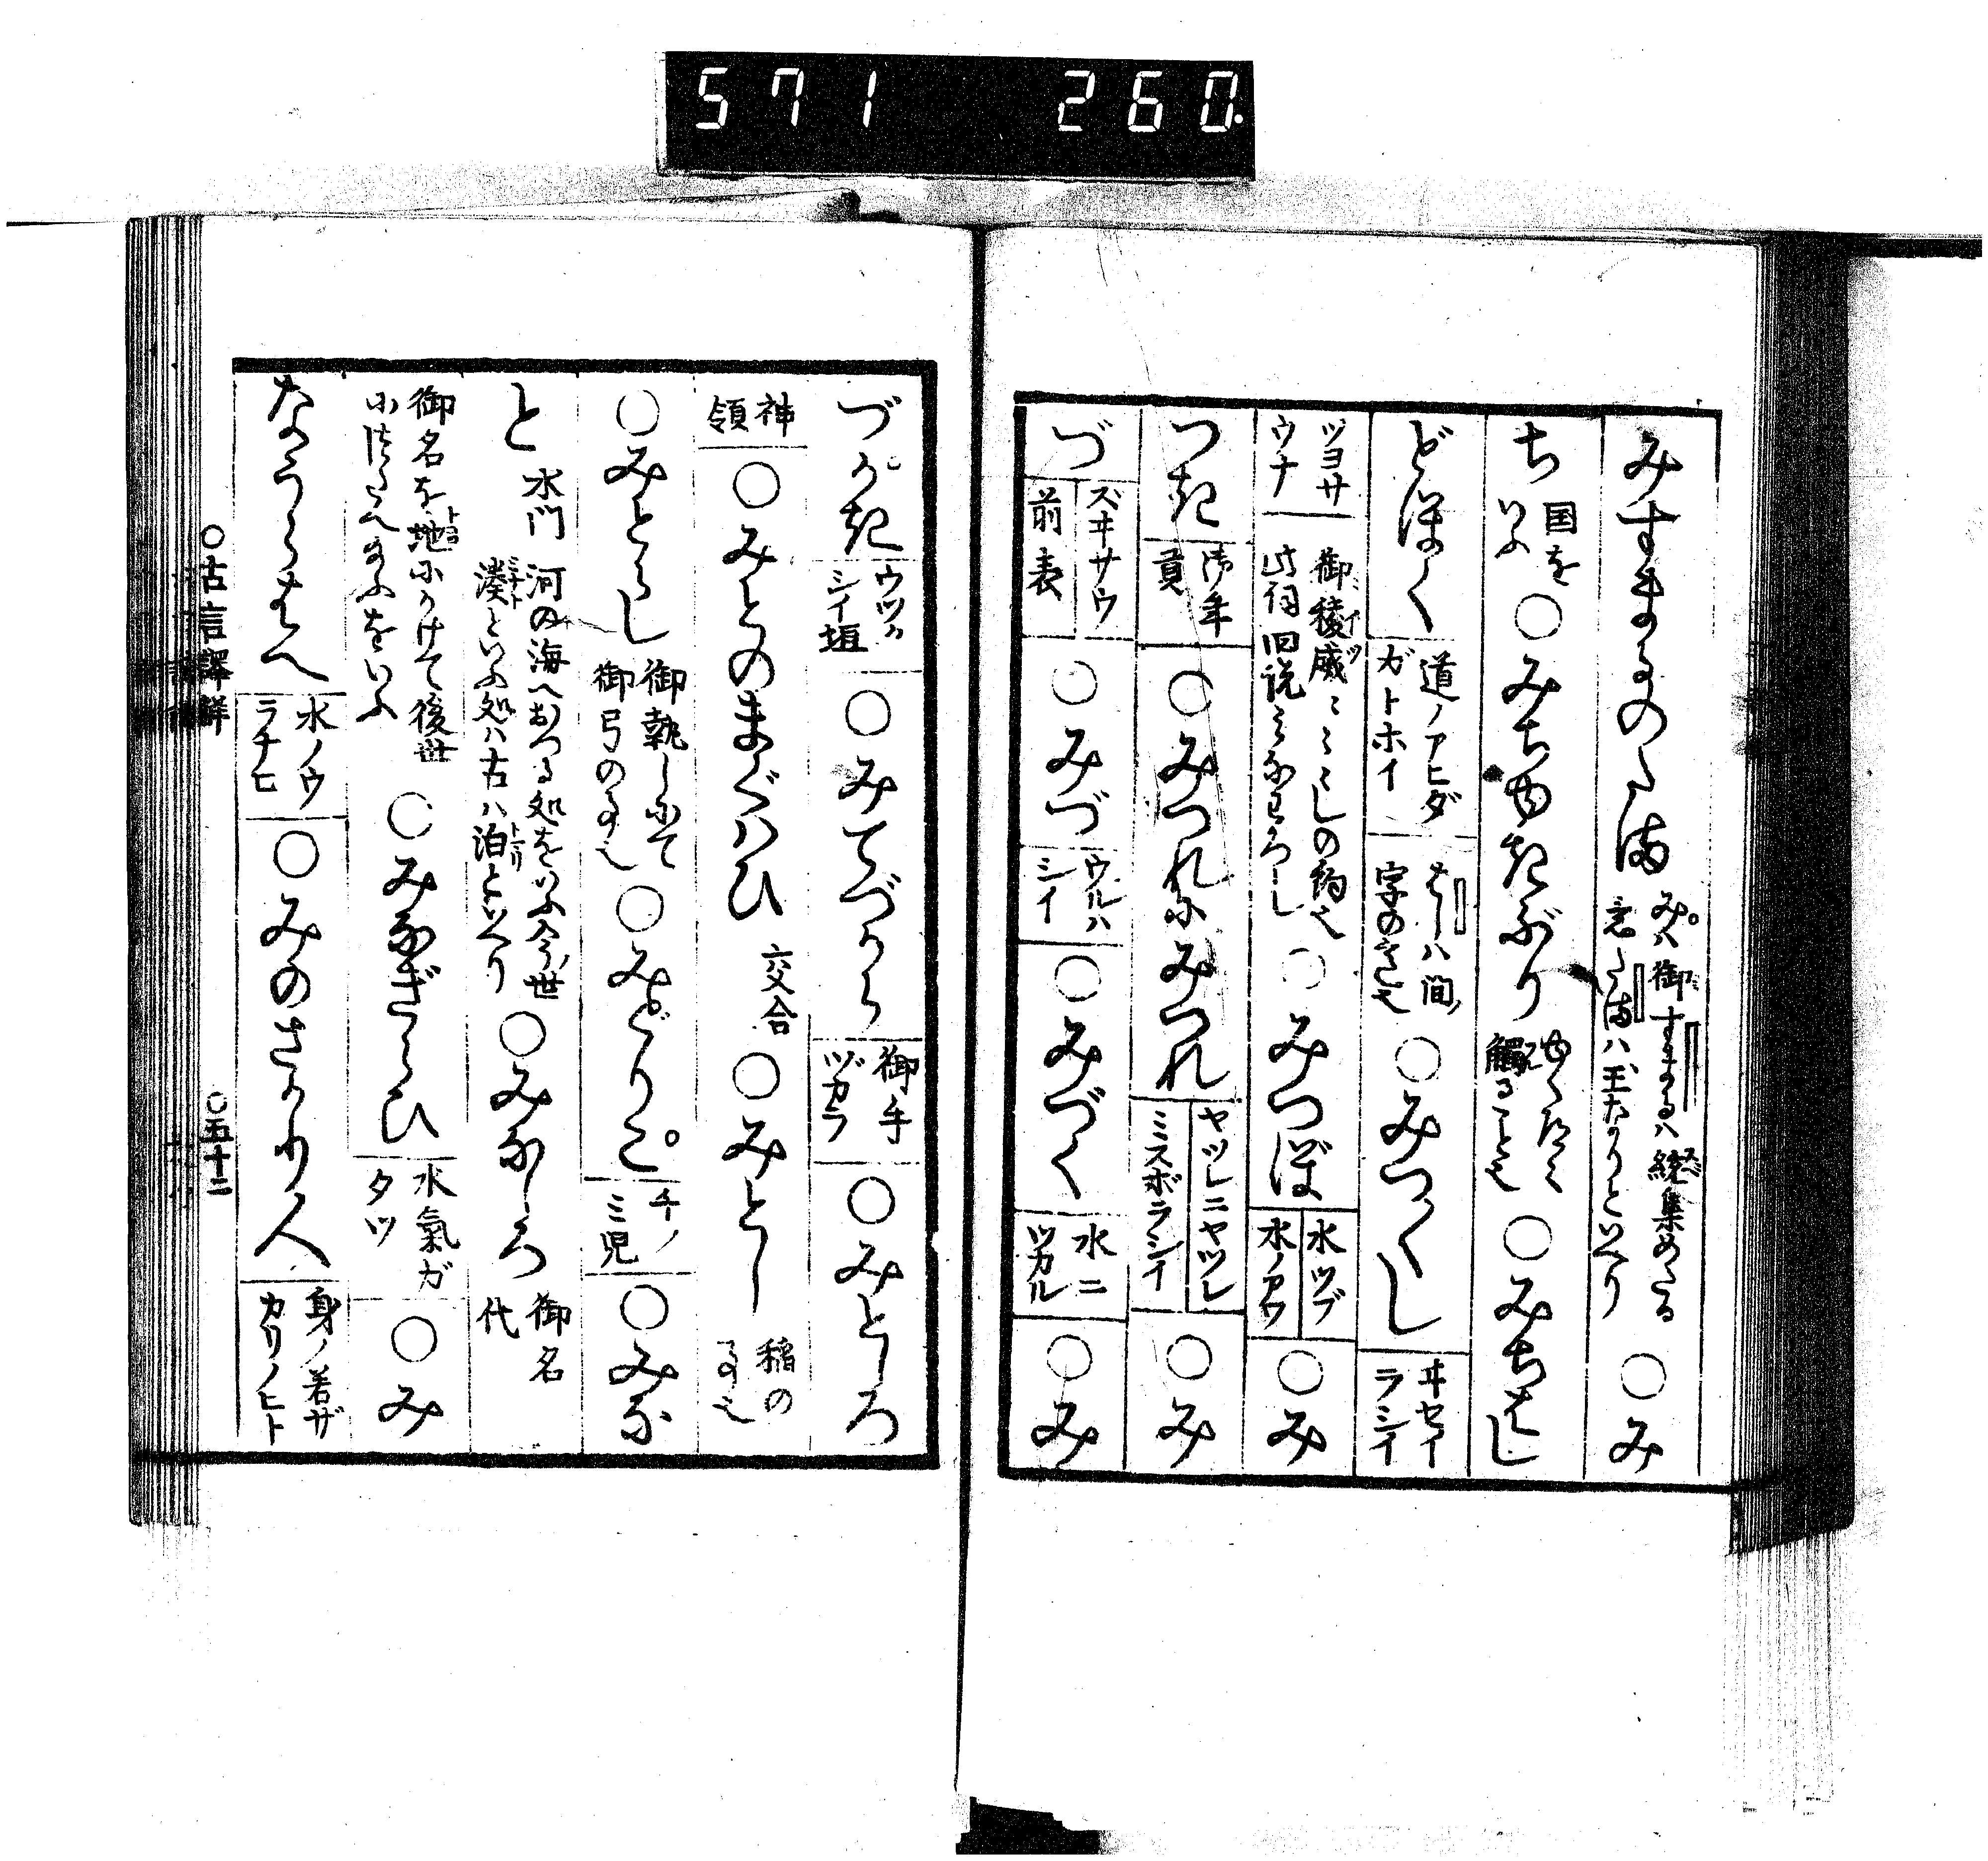 571 260.
みすまるのたま みハ御すまるハ統集めたる
意たまハ玉なりといへり ○み
ち 国を
いふ ○みちゆきぶり ゆくたに
觸ることを ○みちはし
どほく 道ノアヒダ
ガトホイ はしハ間ノ
字の意也 ○みつ〱し ヰセイ
ラシイ
ツヨサ
ウナ 御稜威ミミミしの約也
此稱旧説ミなわろし ○みつぼ 水ツブ
水ノアワ ○み
つき 御年
貢 ○みつれにみつれ ヤツレニヤツレ
ミスボラシイ ○み
づ ズヰサウ
前表 ○みづ ウルハ
シイ ○みづく 水ニ
ツカル ○み
づがき ウツク
シイ垣 ○みてづから 御手
ヅカラ ○みとしろ
神
領 ○みとのまぐハひ 交合 ○みとし 稲の
事也
○みとらし 御執しにて
御弓の事也 ○みどりこ チノ
ミ児 ○みな
と 水門 河の海へおつる処をいふ今ノ世
湊といふ処ハ古ハ泊といへり ○みなしろ 御名
代
御名を地にかけて後世
に伝へ給ふをいふ ○みなぎらひ 水氣ガ
タツ ○み
なうらはへ 水ノウ
ラナヒ ○みのさかり人 身ノ若ザ
カリノヒト
○古言譯解 ○五十二